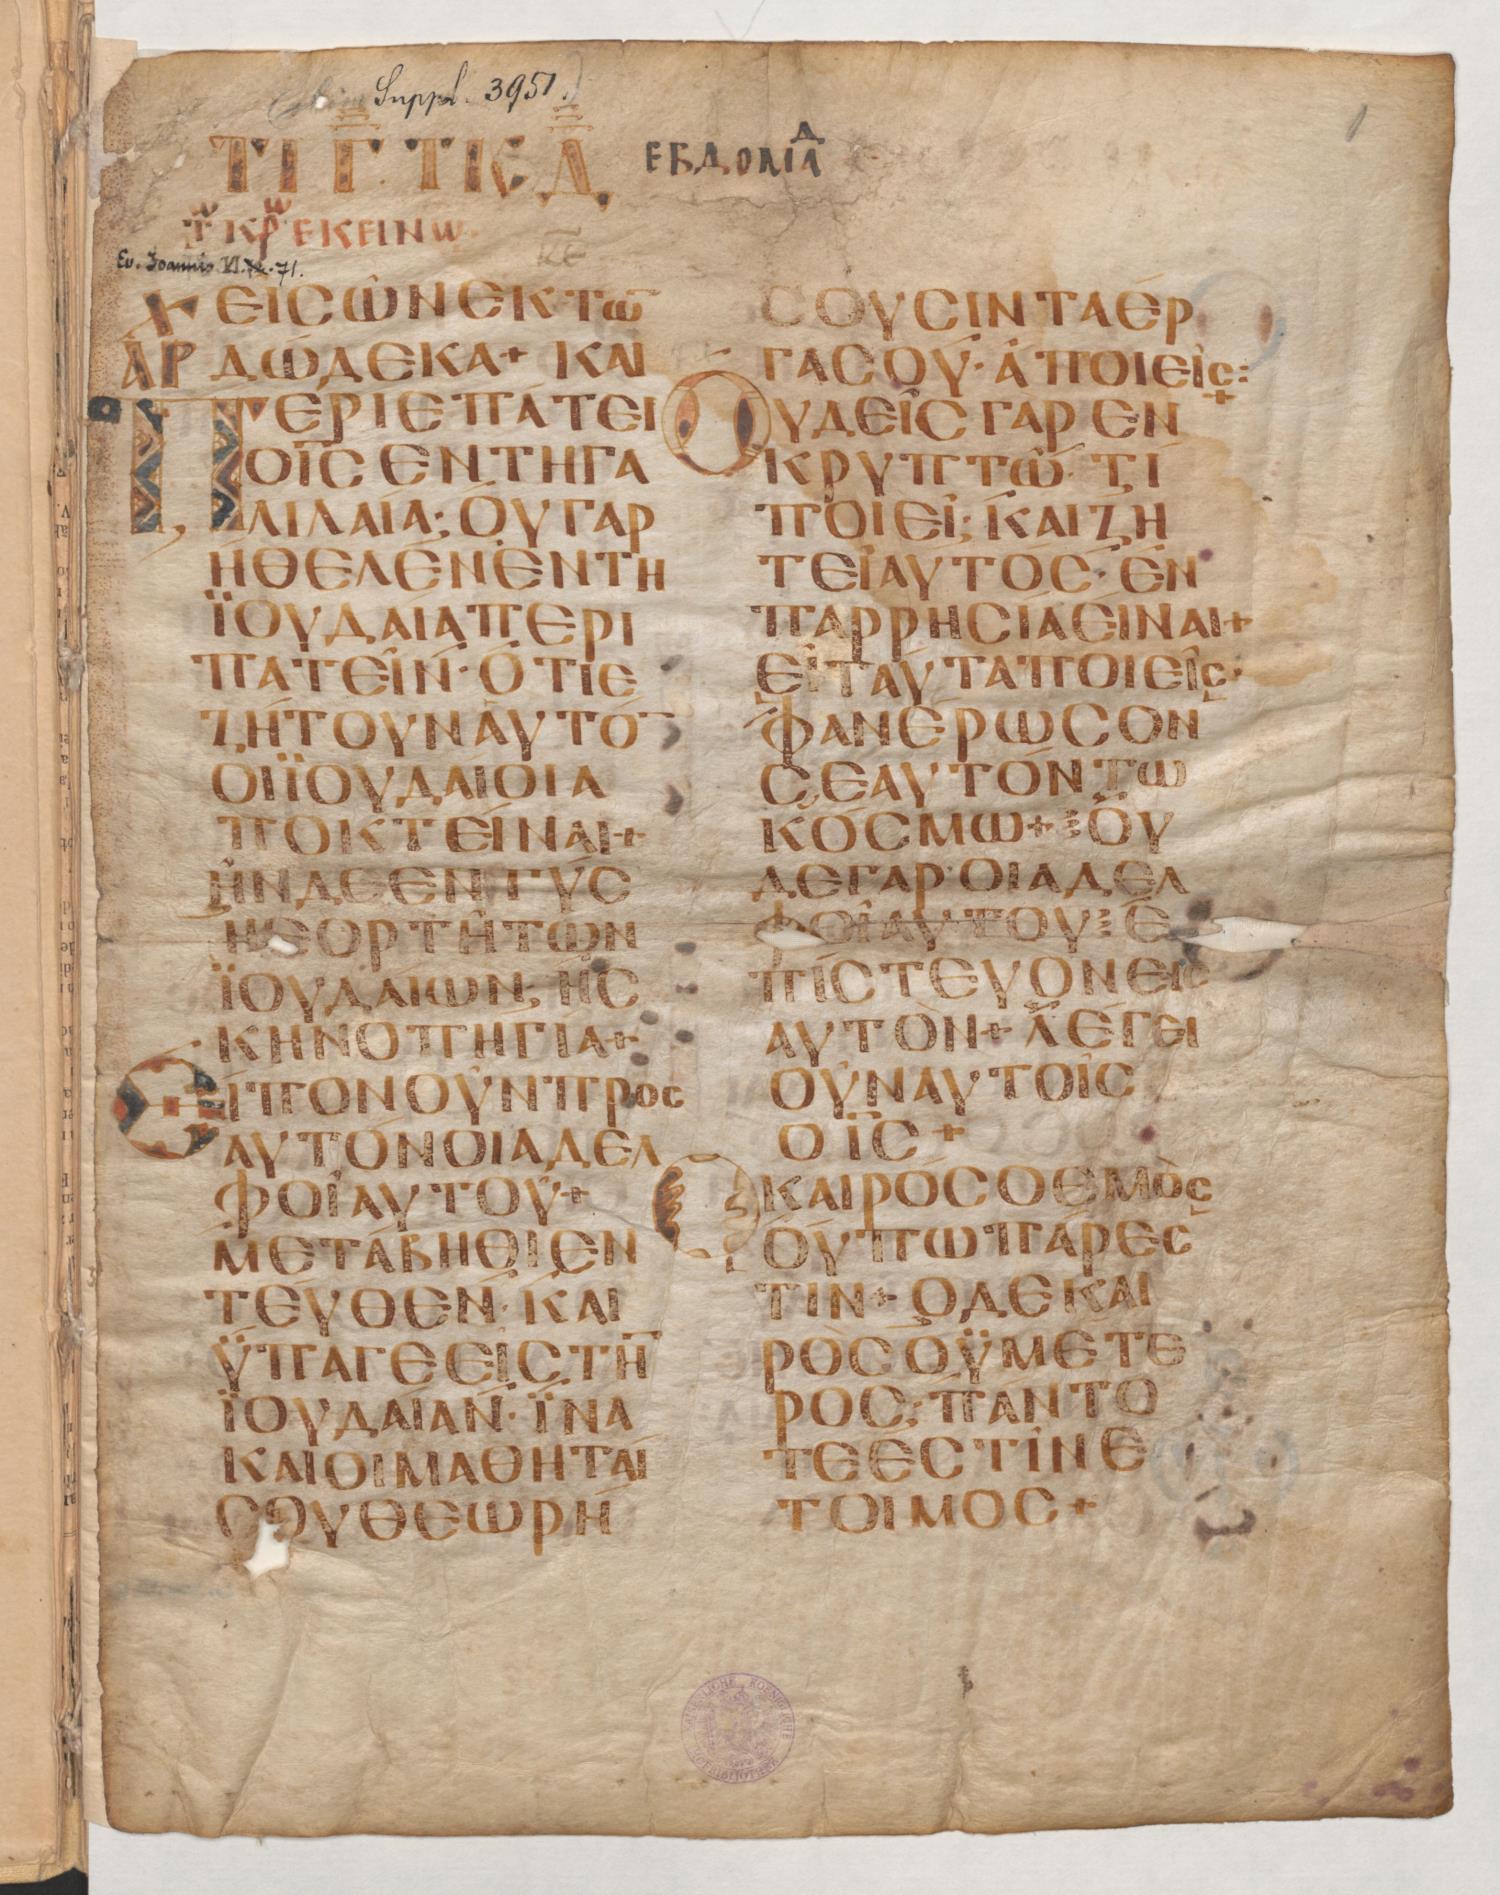 Suppl. 3951.
ΤΙ Γ̅ Τ Κ Δ̅
ΕΒΔΟΜΑΔ
Τ ΚΡ ΕΚΕΙΝΩ
Ev. Joannis VI. 71.
ΕΙC ὼΝ ΕΚ Τῶ
ΑΡ ΔΏΔΕΚΑ+ ΚΑΙ
ΠΕΡΙΕΠΑΤΕΙ
Ο Ι̅C̅ ΕΝ ΤΗ ΓΑ
ΛΙΛΑΙΑ; ΟΥ ΓΑΡ
ΗΘΕΛΕΝ ΕΝ ΤΗ
ΪΟΥΔΑΙΑ ΠΕΡΙ
ΠΑΤΕΙΝ· ΟΤΙ Ε
ΖΗΤΟΥΝ ΑΥΤΟ̅
ΟΙ ΪΟΥΔΑΙΟΙ Α
ΠΟΚΤΕΙΝΑΙ+
ΗΝ ΔΕ ΕΝΓΥC
Η ΕΟΡΤΗ ΤΩΝ
ΪΟΥΔΑΙΩΝ; Η C
ΚΗΝΟΠΗΓΙΑ+
ΕΙΠΟΝ ΟΥΝ ΠΡΟC
ΑΥΤΟΝ ΟΙ ΑΔΕΛ
ΦΟΙ ΑΥΤΟΥ+
ΜΕΤΑΒΗΘΙ ΕΝ
ΤΕΥΘΕΝ· ΚΑΙ
ΫΠΑΓΕ ΕΙC ΤΗ̅
ΪΟΥΔΑΙΑΝ· ΪΝΑ
ΚΑΙ ΟΙ ΜΑΘΗΤΑΙ
CΟΥ ΘΕΩΡΗ
CΟΥCΙΝ ΤΑ ΕΡ
ΓΑ CΟΥ· Α ΠΟΙΕΙC:
ΟΥΔΕΙC ΓΑΡ ΕΝ
ΚΡΥΠΤΩ· ΤΙ
ΠΟΙΕΙ; ΚΑΙ ΖΗ
ΤΕΙ ΑΥΤΟC· ΕΝ
ΠΑΡΡΗCΙΑ ΕΙΝΑΙ+
ΕΙ ΤΑΥΤΑ ΠΟΙΕΙC·
ΦΑΝΕΡΩCΟΝ
CΕΑΥΤΟΝ ΤΩ
ΚΟCΜΩ+ ΟΥ
ΔΕ ΓΑΡ· ΟΙ ΑΔΕΛ
ΦΟΙ ΑΥΤΟΥ: Ε
ΠΙCΤΕΥΟΝ ΕΙC
ΑΥΤΟΝ+ ΛΕΓΕΙ
ΟΥΝ ΑΥΤΟΙC
Ο Ι̅C̅ +
Ο ΚΑΙΡΟC Ο ΕΜΟC
ΟΥΠΩ ΠΑΡΕC
ΤΙΝ+ Ο ΔΕ ΚΑΙ
ΡΟC Ο ΫΜΕΤΕ
ΡΟC; ΠΑΝΤΟ
ΤΕ ΕCΤΙΝ Ε
ΤΟΙΜΟC+